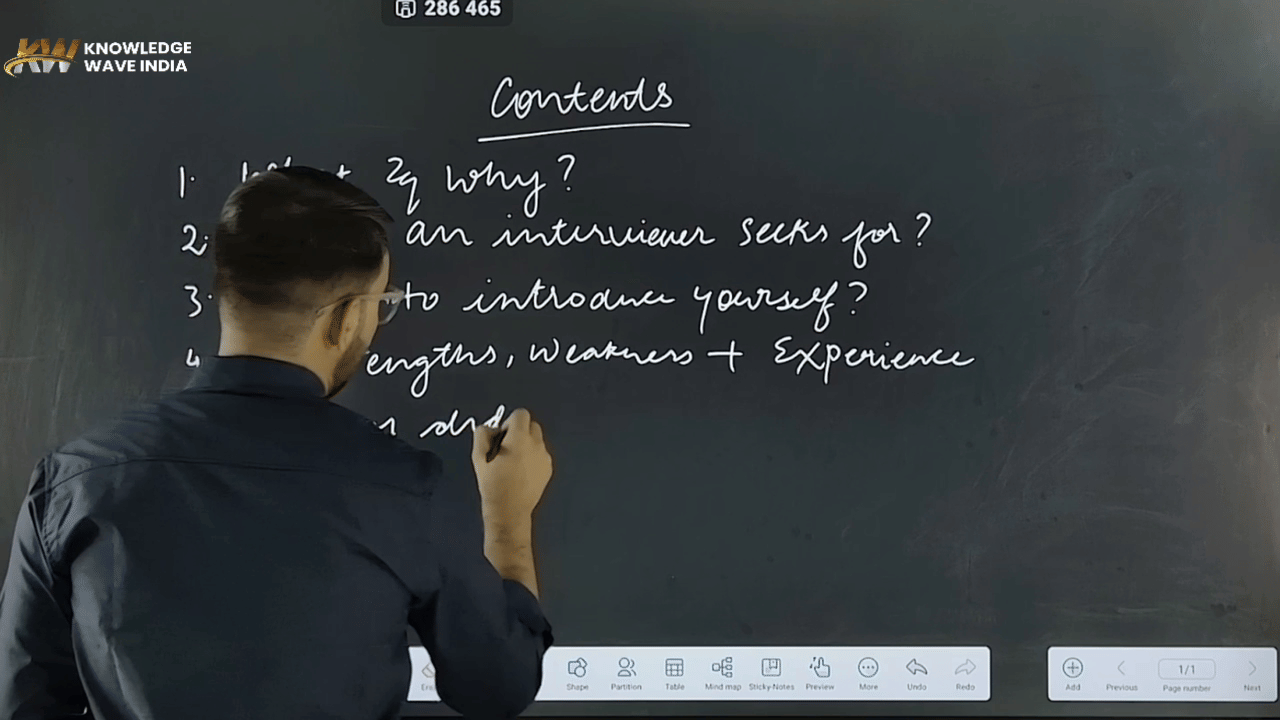 286 465
KW KNOWLEDGE
WAVE INDIA
Contents
1. why?
2. an interviewer seeks for?
3. to introduce yourself?
4 engths, Weakness + Experience
Shape Partition Table Mind map Sticky-Notes Preview More Undo Redo Add Previous 1/1 Page number Next